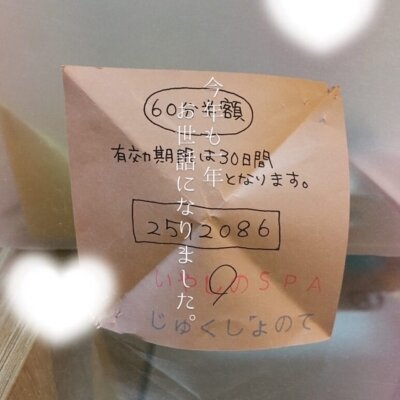 60分半額
有効期限は30日間
となります。
252086
9
いやしのSPA
じゅくしょのて
今年も一年
お世話になりました。